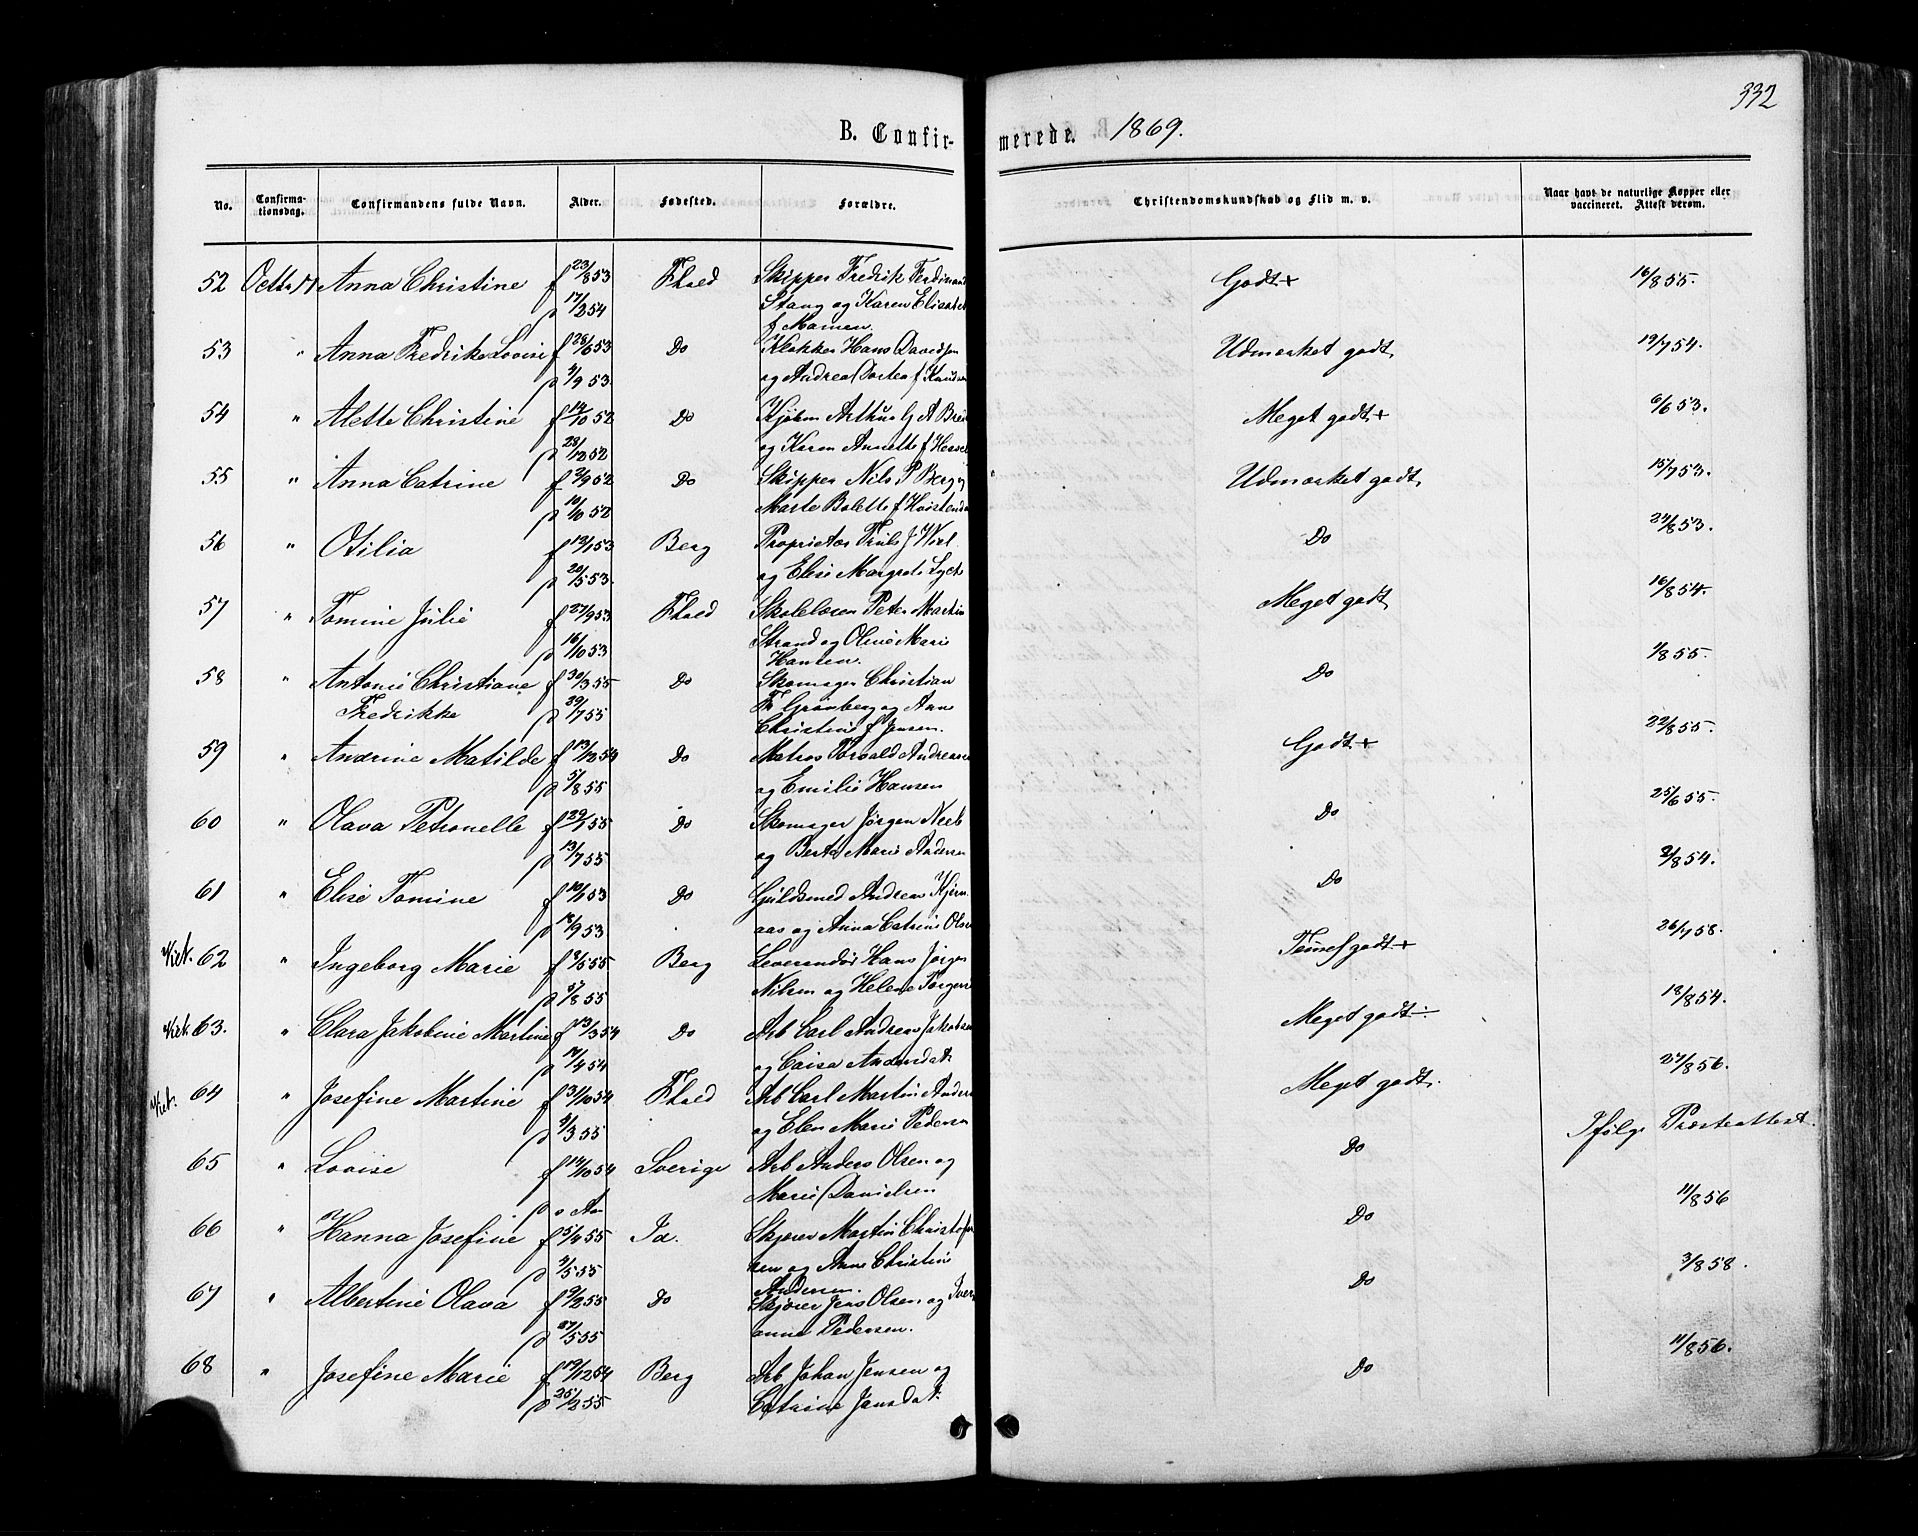 332
B. Confirmerede. 1869.
No. Confirmationsdag. Confirmandens fulde Navn. Alder. Fødested. Forældre. Christendomskundskab og Flid m. v. Naar havt de naturlige Kopper eller vaccineret. Attest derom.
52 Octb 17 Anna Christine f 23/8 53 Fhald Skipper Fredrik Ferdinand Godt + 16/8 55.
d 17/2 54 Stang og Karen Elisabet
f Mamen.
53 " Anna Fredrikke Lovise f 28/6 53 Do Klokker Hans Davidsen Udmærket godt 19/7 54.
d 4/9 53. og Andrea Dortea f Knudsen
54 " Alette Christine f 14/10 52 Do Kjøbm Arthur G A Udmærket Meget godt + 6/6 53.
d 28/12 52 og Karen Annette f
55 " Anna Catrine f 2/9 52 Do Skipper Nils P Berg og Udmærket godt 15/7 53.
d 10/10 52 Marte Bolette f
56 " Otilia f 13/1 53 Berg Proprietær Truls J Wiel Do 24/8 53.
d 20/5 53. og Elise Margrete Lyche
57 " Tomine Julie f 27/9 53 Fhald Skolelærer Peter Martin Meget godt 16/8 54.
d 16/10 53 Strand og Oline Marie
Hansen.
58 " Antonie Christiane f 30/3 55 Do Skomager Christian Do 1/8 55.
Fredrikke d 29/7 55 Fr Grønberg og Anne
Christine f Jensen.
59 " Andrine Matilde f 13/12 54 Do Matros Torvald Andreassen Godt + 22/8 55.
d 5/8 55 og Emilie Hansen
60 " Olava Petronelle f 29/1 55 Do Skomager Jørgen Neeb Do 25/6 55.
d 13/7 55 og Berte Marie Andersen
61 " Elise Tomine f 10/1 53 Do Guldsmed Andreas Kjern Do 2/8 54.
d 18/9 53 aas og Anna Catrine Olsen
62 " Ingeborg Marie f 8/5 55 Berg Leverandør Hans Jørgen Temmel godt + 26/7 58.
d 5/8 55 Nilsen og Helene
63. " Clara Jakobine Martine f 13/3 54 Do Arb Carl Andreas Jakobsen Meget godt ÷ 18/8 54.
d 17/4 54 og Caisa Andersdat.
64 " Josefine Martine f 31/10 54 Fhald Arb Carl Martin Andersen Meget godt. 27/8 56.
d 4/3 55 og Elen Marie Pedersen
65 " Lovise f 14/10 54 Sverige Arb Anders Olsen og Do Ifølge Præsteattest.
d o Aa Marie Danielsen
66 " Hanna Josefine f 5/4 55 Id. Skjærer Martin Christofer Do 11/8 56
d 7/5 55 sen og Anne Christine
Andersen.
67 " Albertine Olava f 9/2 55 Do Skjærer Jens Olsen og Iver Do 3/8 58.
d 27/5 55 anna Pedersen.
68 " Josefine Marie f 19/12 54 Berg Arb Johan Jensen og Do 11/8 56.
d 25/2 55 Catrine Jansdat.